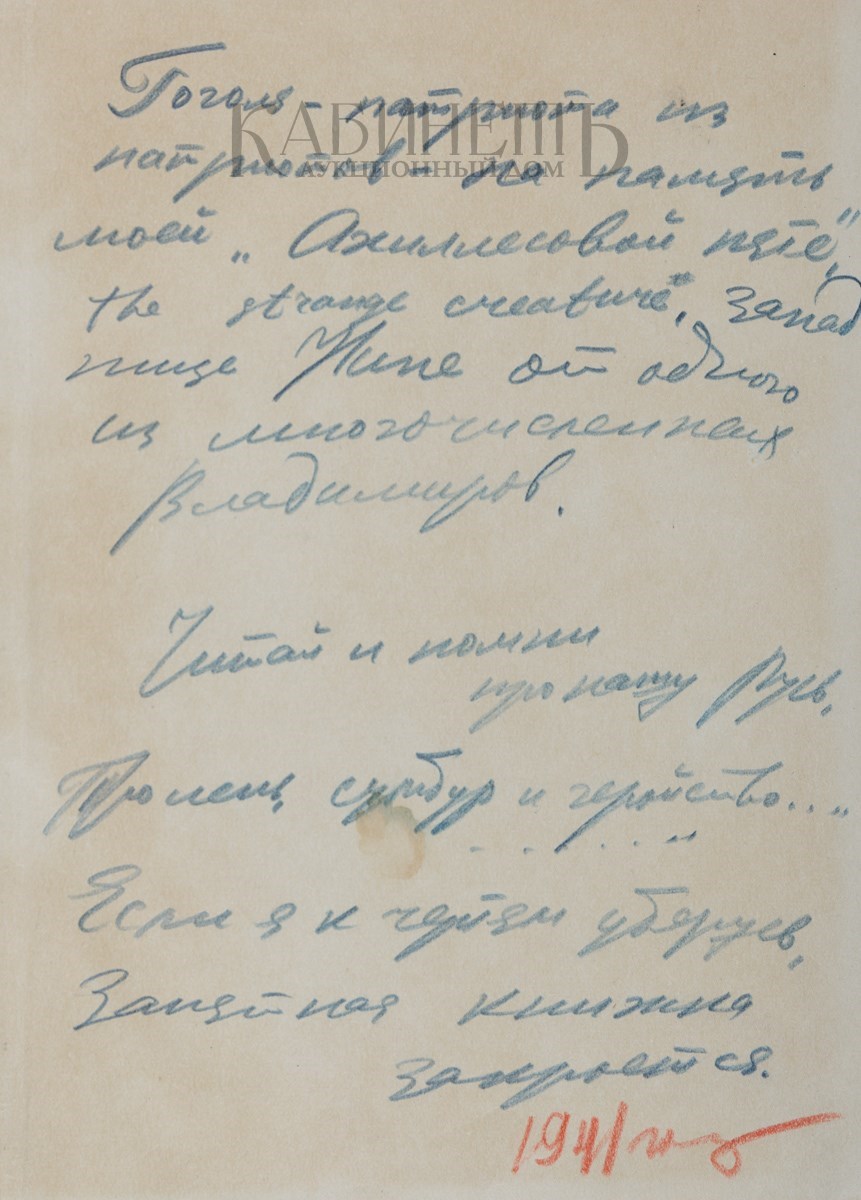 КАБИНЕТЪ
АУКЦИОННЫЙ ДОМ
Гоголя - патриота из
патриотов - на память
моей „Ахиллесовой пяте",
„the strange creature", запад
нице Нине от одного
из многочисленных
Владимиров.
Читай и помни
про нашу Русь,
Про лень, сумбур и геройство..."
. . . . . "
Если я к чертям уберусь,
Занятная книжка
закроется.
1941 год